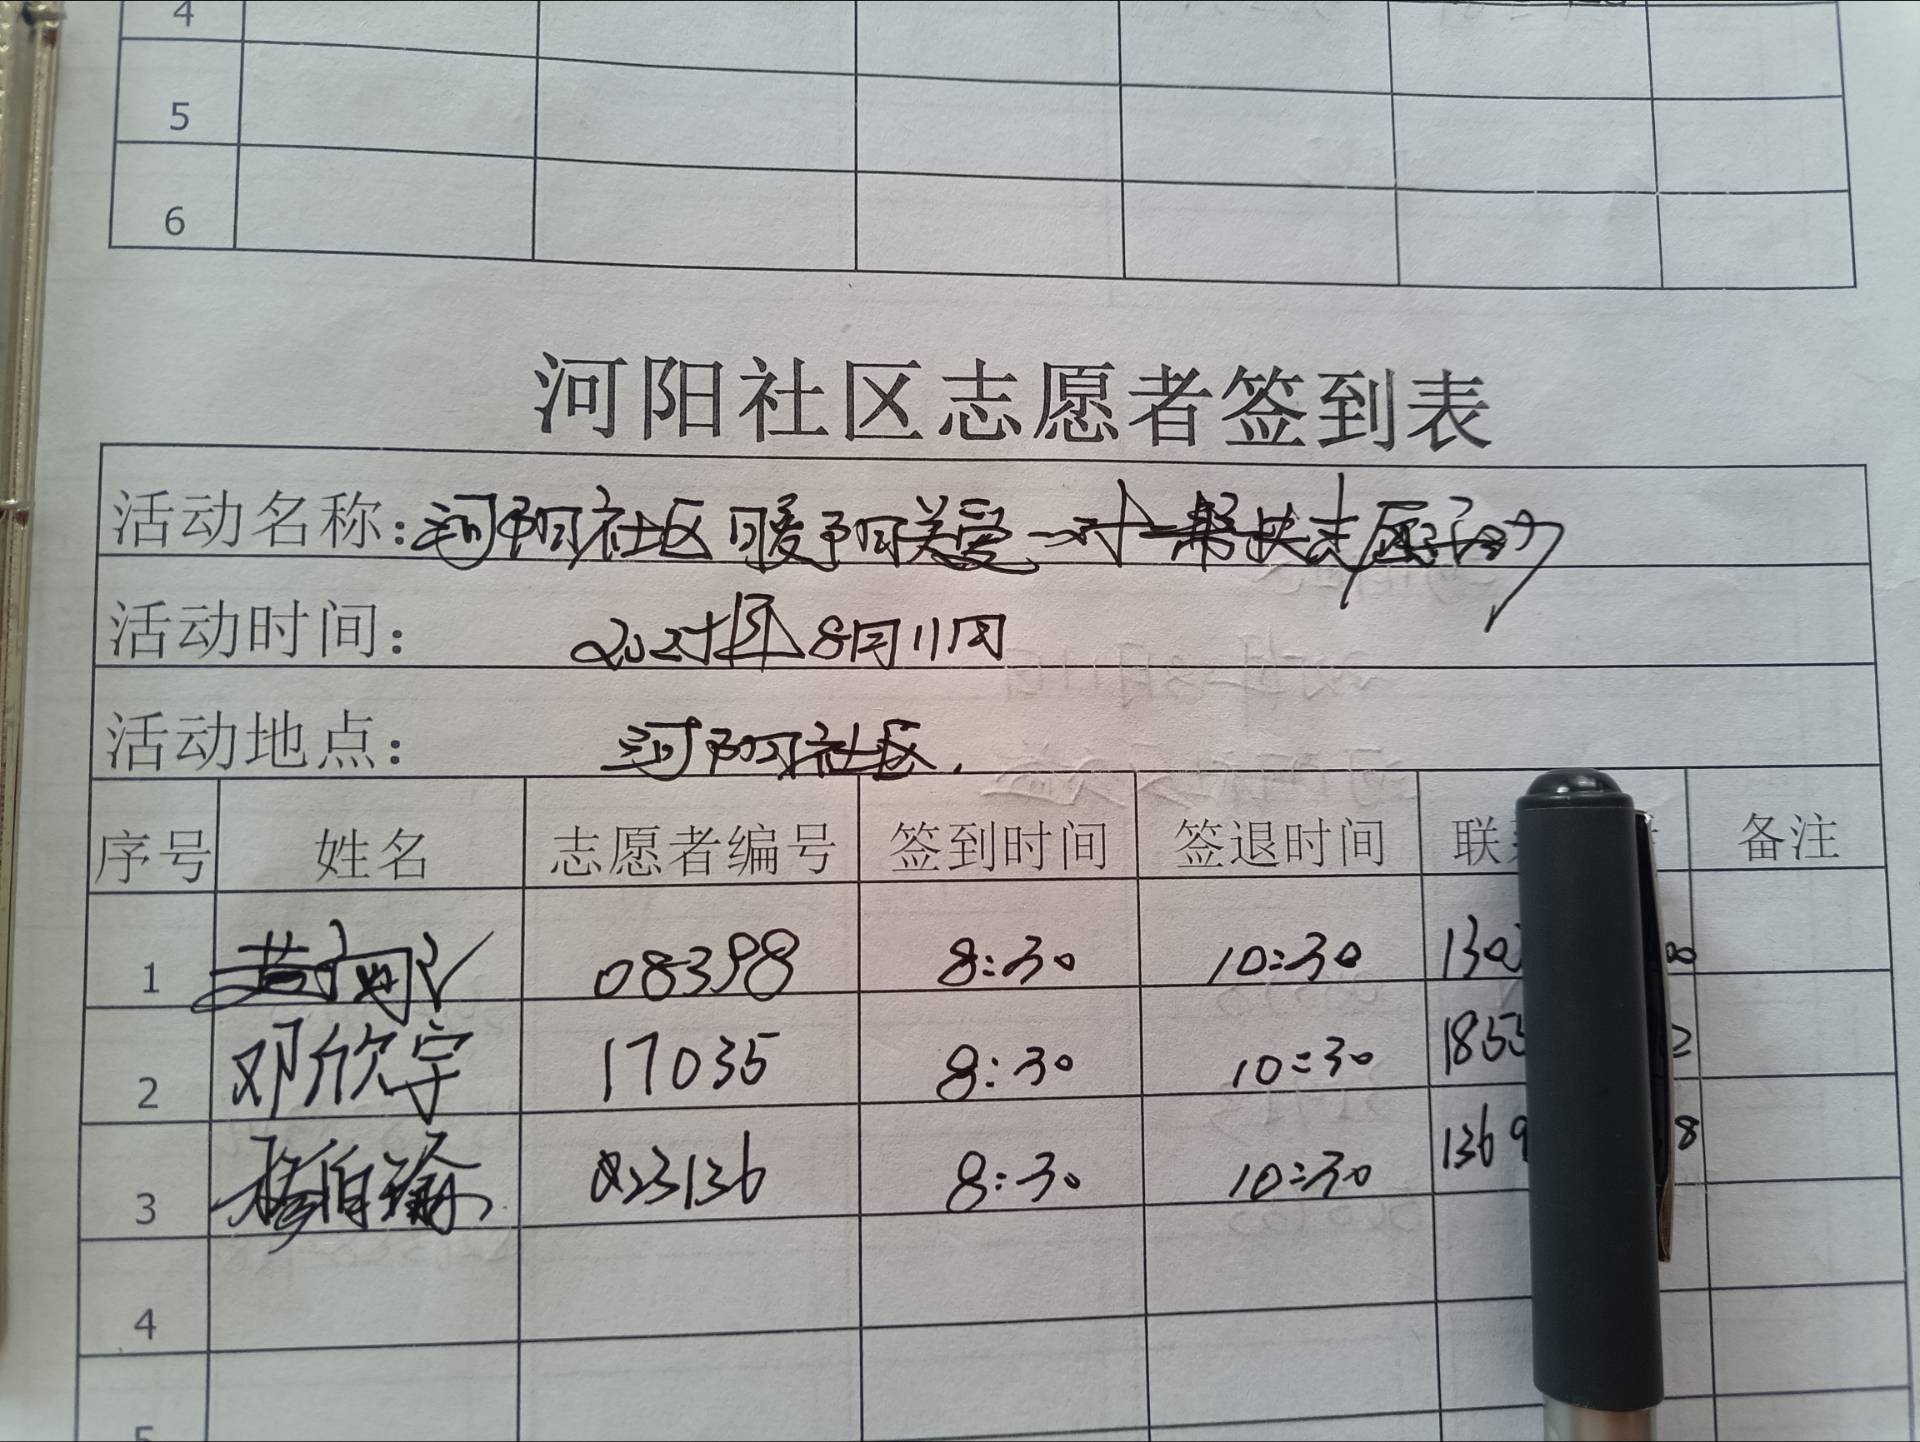 4
5
6
河阳社区志愿者签到表
活动名称：河阳社区暖阳关爱一对一帮扶志愿活动
活动时间： 年8月11日
活动地点： 河阳社区.
序号 姓名 志愿者编号 签到时间 签退时间 联 备注
1 08398 8:30 10:30 130
2 邓欣宇 17035 8:30 10:30 1853 2
3 023136 8:30 10:30 1369 8
4
5